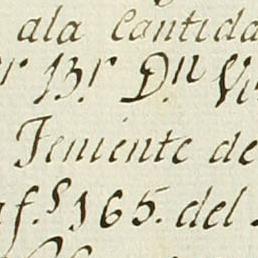 ala Cantida
r Br. Dn Vi
Teniente de
f.s 165. del